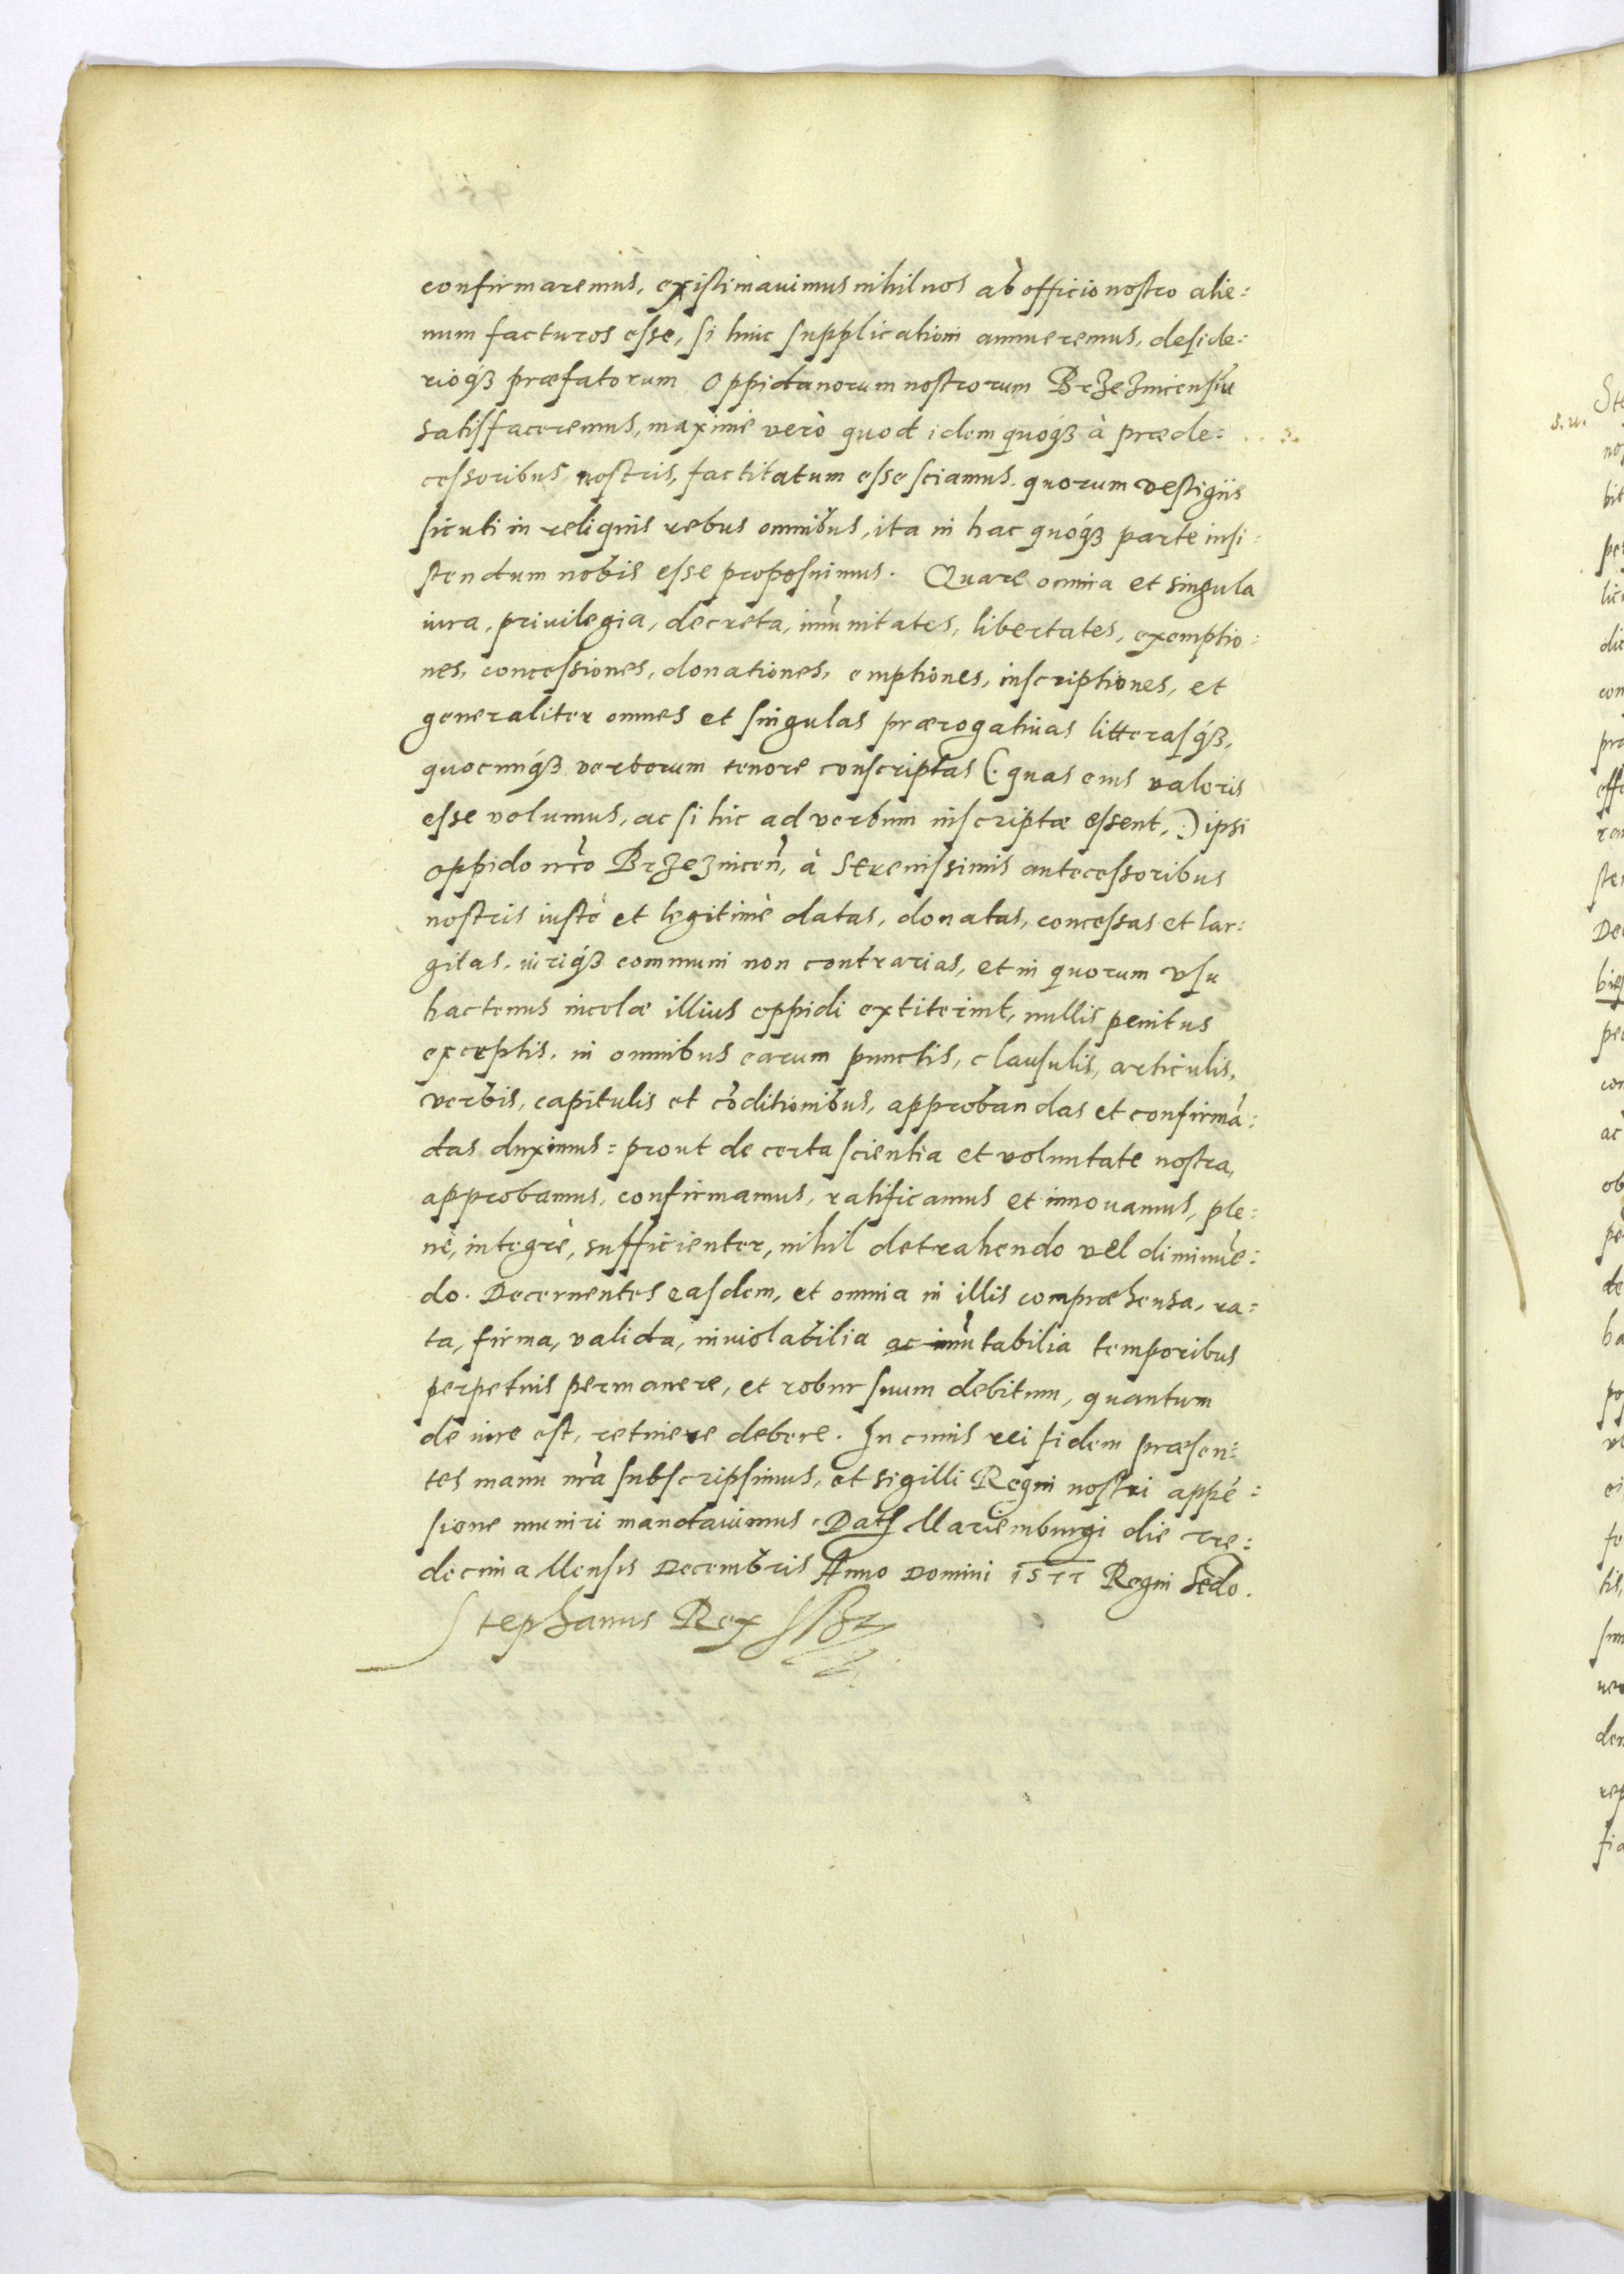 confirmaremus, existimauimus nihil nos ab officio nostro alie:
num facturos esse, si huic supplicationi annueremus, deside:
rioq́ꝫ præfatorum Oppidanorum nostrorum Brzeznicensiū
satisfaceremus, maximè verò quod idem quoq́ꝫ à præde:
cessoribus nostris, factitatum esse sciamus, quorum vestigiis
sicuti in reliquis rebus omnibus, ita in hac quoq́ꝫ parte insi:
stendum nobis esse proposuimus. Quare omnia et singula
iura, priuilegia, decreta, im̄unitates, libertates, exemptio:
nes, concessiones, donationes, emptiones, inscriptiones, et
generaliter omnes et singulas prærogatiuas litterasq́ꝫ,
quocunq́ꝫ verborum tenore conscriptas (: quas eius valoris
esse volumus, ac si hic ad verbum inscriptæ essent, :) ipsi
oppido nr̄o Brzeznicen̄, à Serenissimis antecessoribus
nostris iustè et legitimè datas, donatas, concessas et lar:
gitas, iuriq́ꝫ communi non contrarias, et in quorum vsu
hactenus incolæ illius oppidi extiterint, nullis penitus
exceptis, in omnibus earum punctis, clausulis, articulis,
verbis, capitulis et cōditionibus, approbandas et confirmā:
das duximus: prout de certa scientia et voluntate nostra,
approbamus, confirmamus, ratificamus et innouamus, ple:
nè, integrè, sufficienter, nihil detrahendo vel diminuē:
do. Decernentes easdem, et omnia in illis compræhensa, ra:
ta, firma, valida, inuiolabilia ac im̄utabilia temporibus
perpetuis permanere, et robur suum debitum, quantum
de iure est, retinere debere. In cuius rei fidem præsen:
tes manu nr̄a subscripsimus, et sigilli Regni nostri appē:
sione muniri mandauimus. Dat͠ Mariemburgi die tre:
decima Mensis Decembris Anno Domini 1577 Regni Sēdo.
Stephanus Rex sst